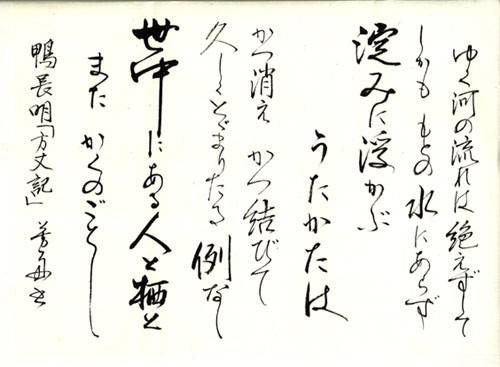 ゆく河の流れは 絶えずして
しかも もとの 水にあらず
淀みに浮かぶ
うたかたは
かつ消え かつ結びて
久しくとどまりたる 例なし
世中にある人と栖と
また かくのごとし
鴨長明「方丈記」